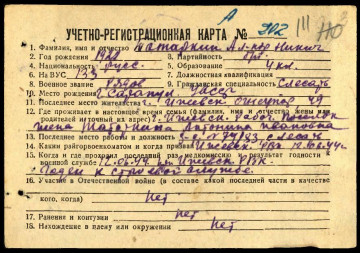 А
УЧЕТНО-РЕГИСТРАЦИОННАЯ КАРТА № 202
1. Фамилия, имя и отчество Татаркин Ал-др Никит
2. Год рождения 1928 3. Партийность б/п
4. Национальность русс. 5. Образование 4 кл.
6. На ВУС 133 7. Должностная квалификация
8. Военное звание рядов. 9. Гражданская специальность Слесарь
10. Место рождения г. Сарапул
11. Последнее место жительства г. Ижевск 49
12. Где проживает в настоящее время семья (фамилия, имя и отчество жены или
родителей и точный их адрес) г. Ижевск. рабоч. Поселок
жена Татаркина Ивановна
13. Последнее место работы и должность слесарь
14. Каким райгорвоенкоматом и когда призван Ижевск. РВК 12.06.44 г.
15. Когда и где проходил последний раз медкомиссию и результат годности
к военной службе 12.06.44 г. Ижевск. РВК
Годен к строевой службе.
16. Участие в Отечественной войне (в составе какой последней части в качестве
кого, когда) нет
17. Ранения и контузии нет
18. Нахождение в плену или окружении нет